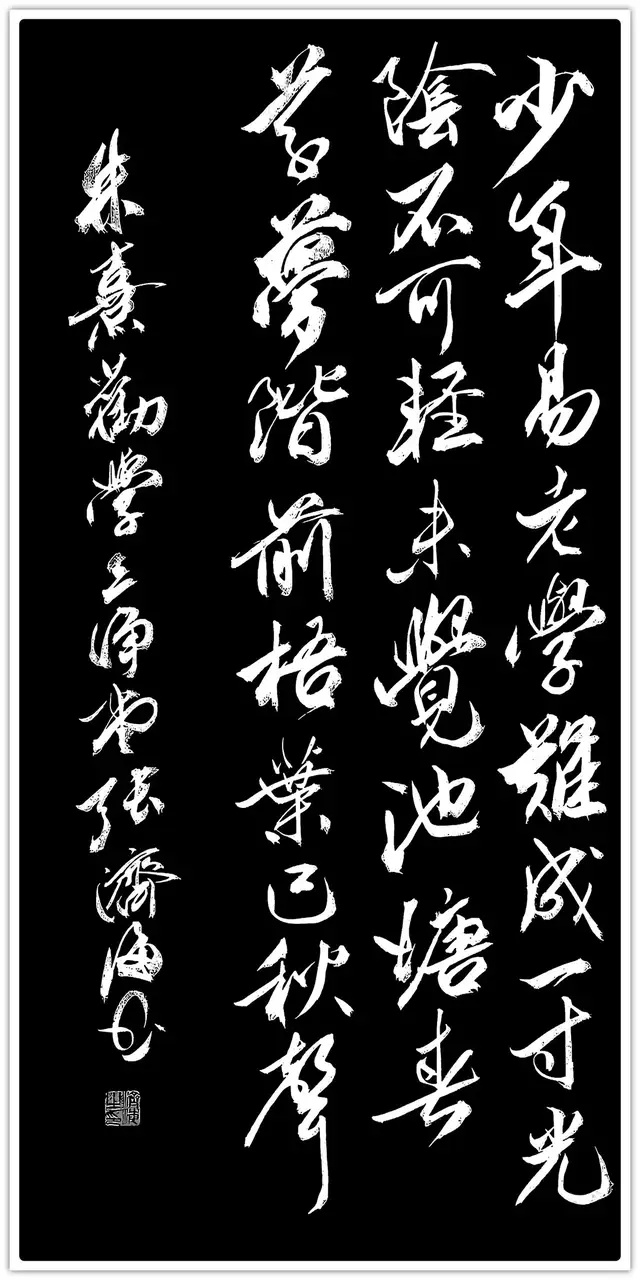 少年易老學難成一寸光
陰不可輕未覺池塘春
草夢階前梧葉已秋聲
朱熹勸學淨堂張濟海書